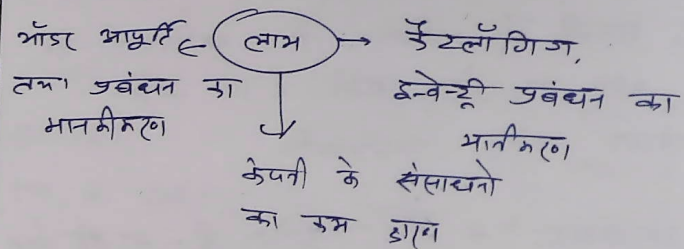 लाभ
ऑडर आपूर्ति
तथा प्रबंधन का
मानकीकरण
कैटलॉगिग,
इन्वेन्ट्री प्रबंधन का
मानकीकरण
कंपनी के संसाधनो
का कम